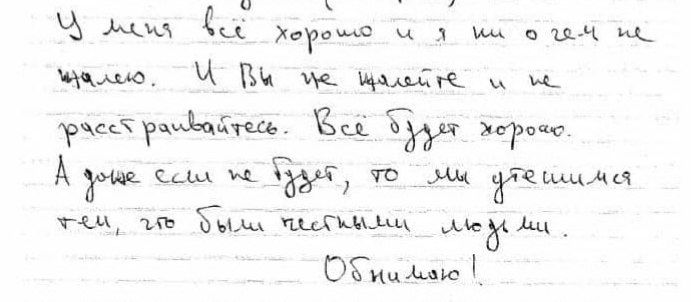 У меня всё хорошо и я ни о чем не
жалею. И Вы не жалейте и не
расстраивайтесь. Всё будет хорошо.
А даже если не будет, то мы утешимся
тем, что были честными людьми.
Обнимаю!